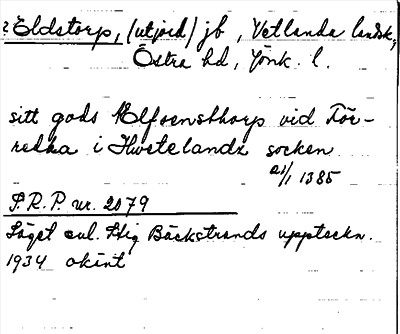 ? Eldstorp, (utjord) jb, Vetlanda landsk,
Östra hd, Jönk. l.
sitt gods Elfvensthorp vid För-
redha i Hvetelandz socken
21/1 1385
S.R.P. nr. 2079
Läget enl. Stig Bäckstrands uppteckn.
1934 okänt